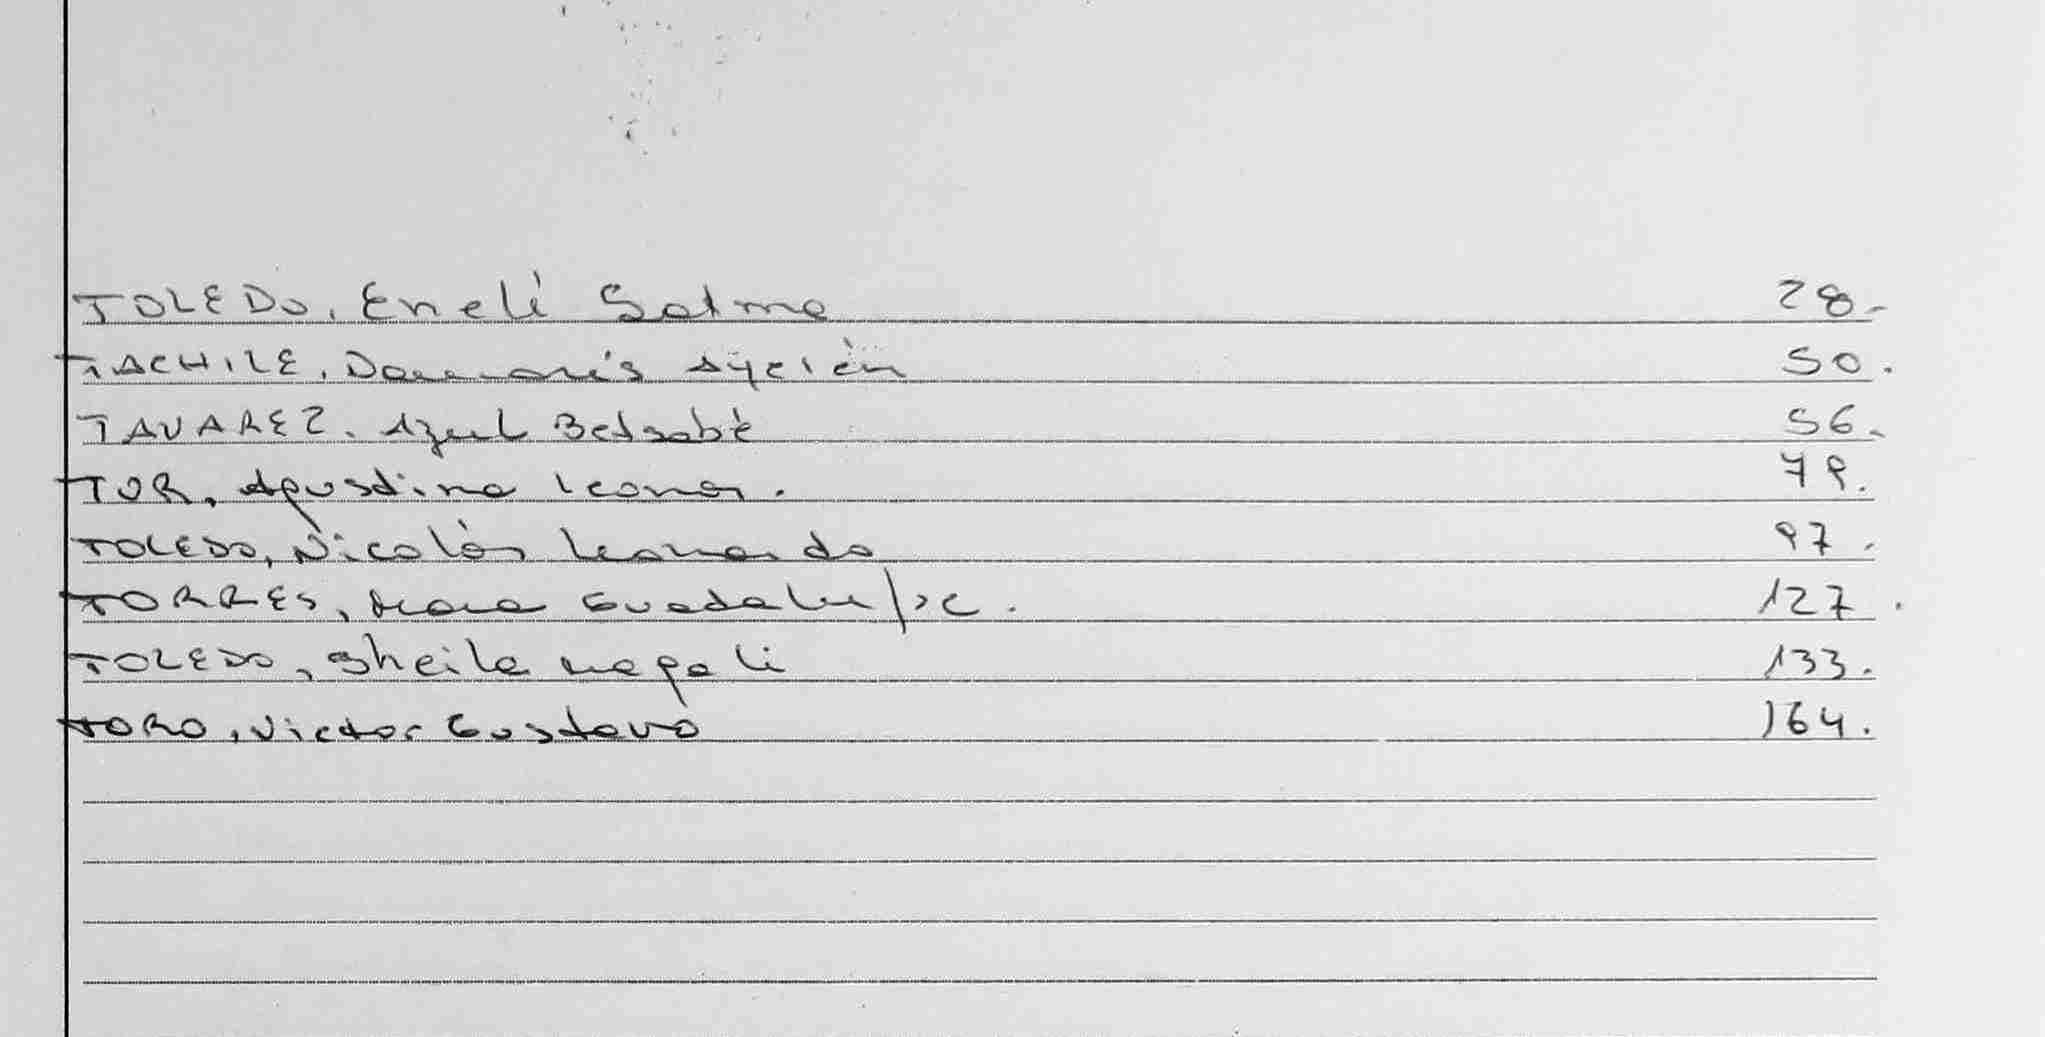 TOLEDO, Enelí Salma 28.-
TACHILE, Damaris Ayelén 50.
TAVAREZ. Azul Betsabé 56.
TOR, Agustina Leonor. 79.
TOLEDO, Nicolás Leonardo 97.
TORRES, Guadalupe. 127.
TOLEDO, Sheila Magali 133.
TORO, Victor Gustavo 164.